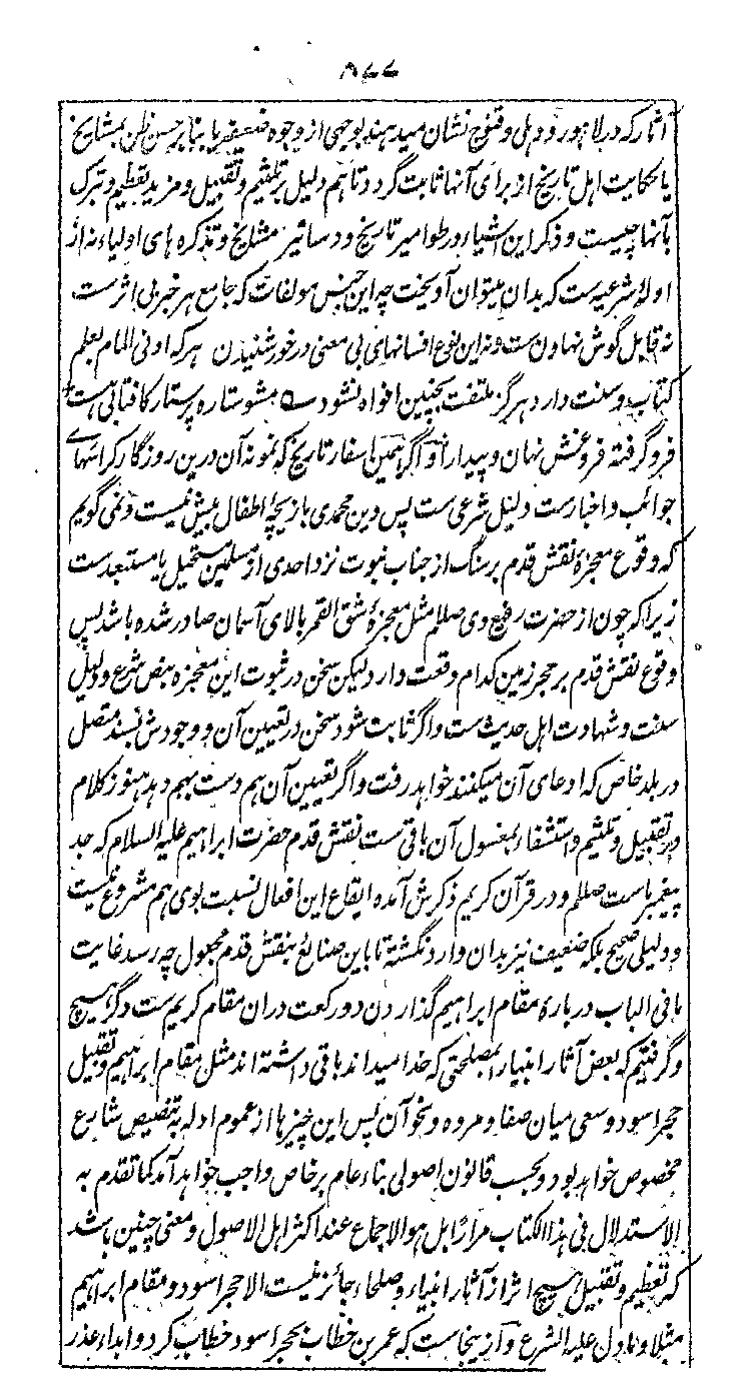 ۵۷۷
آثار که در لاهور و دهلی و قنوج نشان میدهند بوجهی از وجوه ضعیفه یا بنا بر حسن ظن بمشایخ
یا حکایت اهل تاریخ از برای آنها ثابت گردد تا هم دلیل بر تلثیم و تقبیل و مزید تعظیم و تبرک
بآنها چیست و ذکر این اشیاء در طوامیر تاریخ و دساتیر مشایخ و تذکره های اولیاء نه از
ادله شرعیه ست که بدان میتوان آویخت چه این جنس مولفات که جامع هر خبر بی اثر ست
نه قابل گوش نهادن ست و نه این نوع افسانهای بی معنی در خور شنیدن هر که ادنی المام بعلم
کتاب و سنت دارد هرگز ملتفت بچنین افواه نشود ے مشو ستاره پرستار کافتابی هست
فرو گرفته فروغش نهان و پیدا را و اگر همین اسفار تاریخ که نمونه آن درین روزگار کراسهای
جوائب و اخبار ست دلیل شرعی ست پس دین محمدی بازیچه اطفال بیش نیست و نمی گویم
که وقوع معجزهٔ نقش قدم بر سنگ از جناب نبوت نزد احدی از مسلمین مستحیل یا مستبعد ست
زیرا که چون از حضرت رفیع وی صللم مثل معجزهٔ شق القمر بالای آسمان صادر شده باشد پس
وقوع نقش قدم بر حجر زمین کدام وقعت دارد لیکن سخن در ثبوت این معجزه بنص شرع و دلیل
سنت و شهادت اهل حدیث ست و اگر ثابت شود سخن در تعیین آن و وجودش بسند متصل
در بلد خاص که ادعای آن میکنند خواهد رفت و اگر تعیین آن هم دست بهم دهد هنوز کلام
در تقبیل و تلثیم و استشفاء بمغسول آن باقی ست نقش قدم حضرت ابراهیم علیه السلام که جد
پیغمبر ماست صللم و در قرآن کریم ذکرش آمده ایقاع این افعال نسبت بوی هم مشروع نیست
و دلیلی صحیح بلکه ضعیف نیز بدان وارد نگشته تا باین صنائع بنقش قدم مجهول چه رسد غایت
ما فی الباب دربارهٔ مقام ابراهیم گذاردن دو رکعت دران مقام کریم ست دگر هیچ
و گرفتیم که بعض آثار انبیا را بمصلحتی که خدا میداند باقی داشته اند مثل مقام ابراهیم و تقبیل
حجر اسود و سعی میان صفا و مروه و نحو آن پس این چیزها از عموم ادله بتنصیص شارع
مخصوص خواهد بود و بحسب قانون اصولی بناء عام بر خاص واجب خواهد آمد کما تقدم به
الاستدلال فی هذا الکتاب مرارا بل هو الاجماع عند اکثر اهل الاصول و معنی چنین باشد
که تعظیم و تقبیل هیچ اثر از آثار انبیاء و صلحاء جائز نیست الا حجر اسود و مقام ابراهیم
مثلا و ما دل علیه الشرع و از ینجاست که عمر بن خطاب بحجر اسود خطاب کرد و ابداء عذر